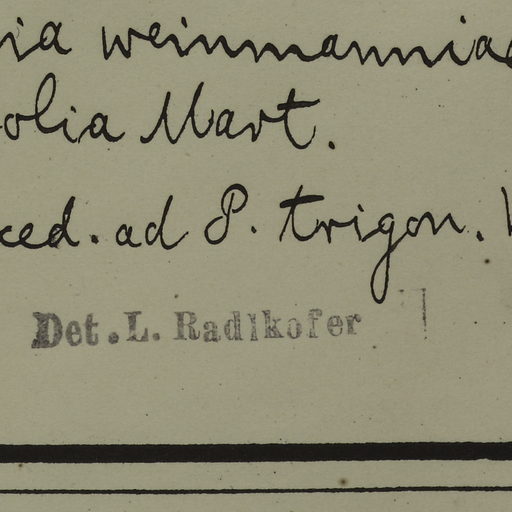 ia weinmanniae
olia Mart.
ced. ad P. trigon.
Det. L. Radlkofer